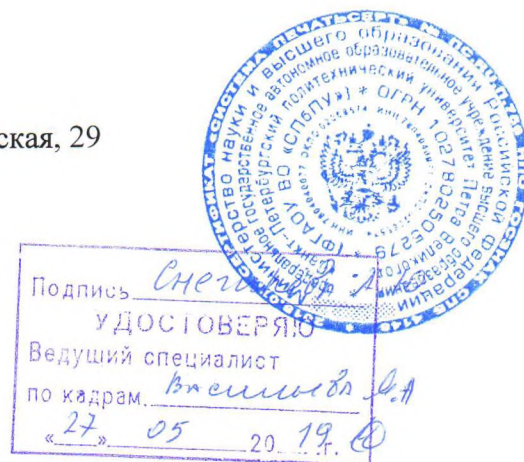 ская, 29
МИНИСТЕРСТВО НАУКИ И ВЫСШЕГО ОБРАЗОВАНИЯ РОССИЙСКОЙ ФЕДЕРАЦИИ
федеральное государственное автономное образовательное учреждение высшего образования
«Санкт-Петербургский политехнический университет Петра Великого»
(ФГАОУ ВО «СПбПУ») * ОГРН 1027802505279 *
Подпись
УДОСТОВЕРЯЮ
Ведущий специалист
по кадрам Васильева
«27» 05 2019 г.